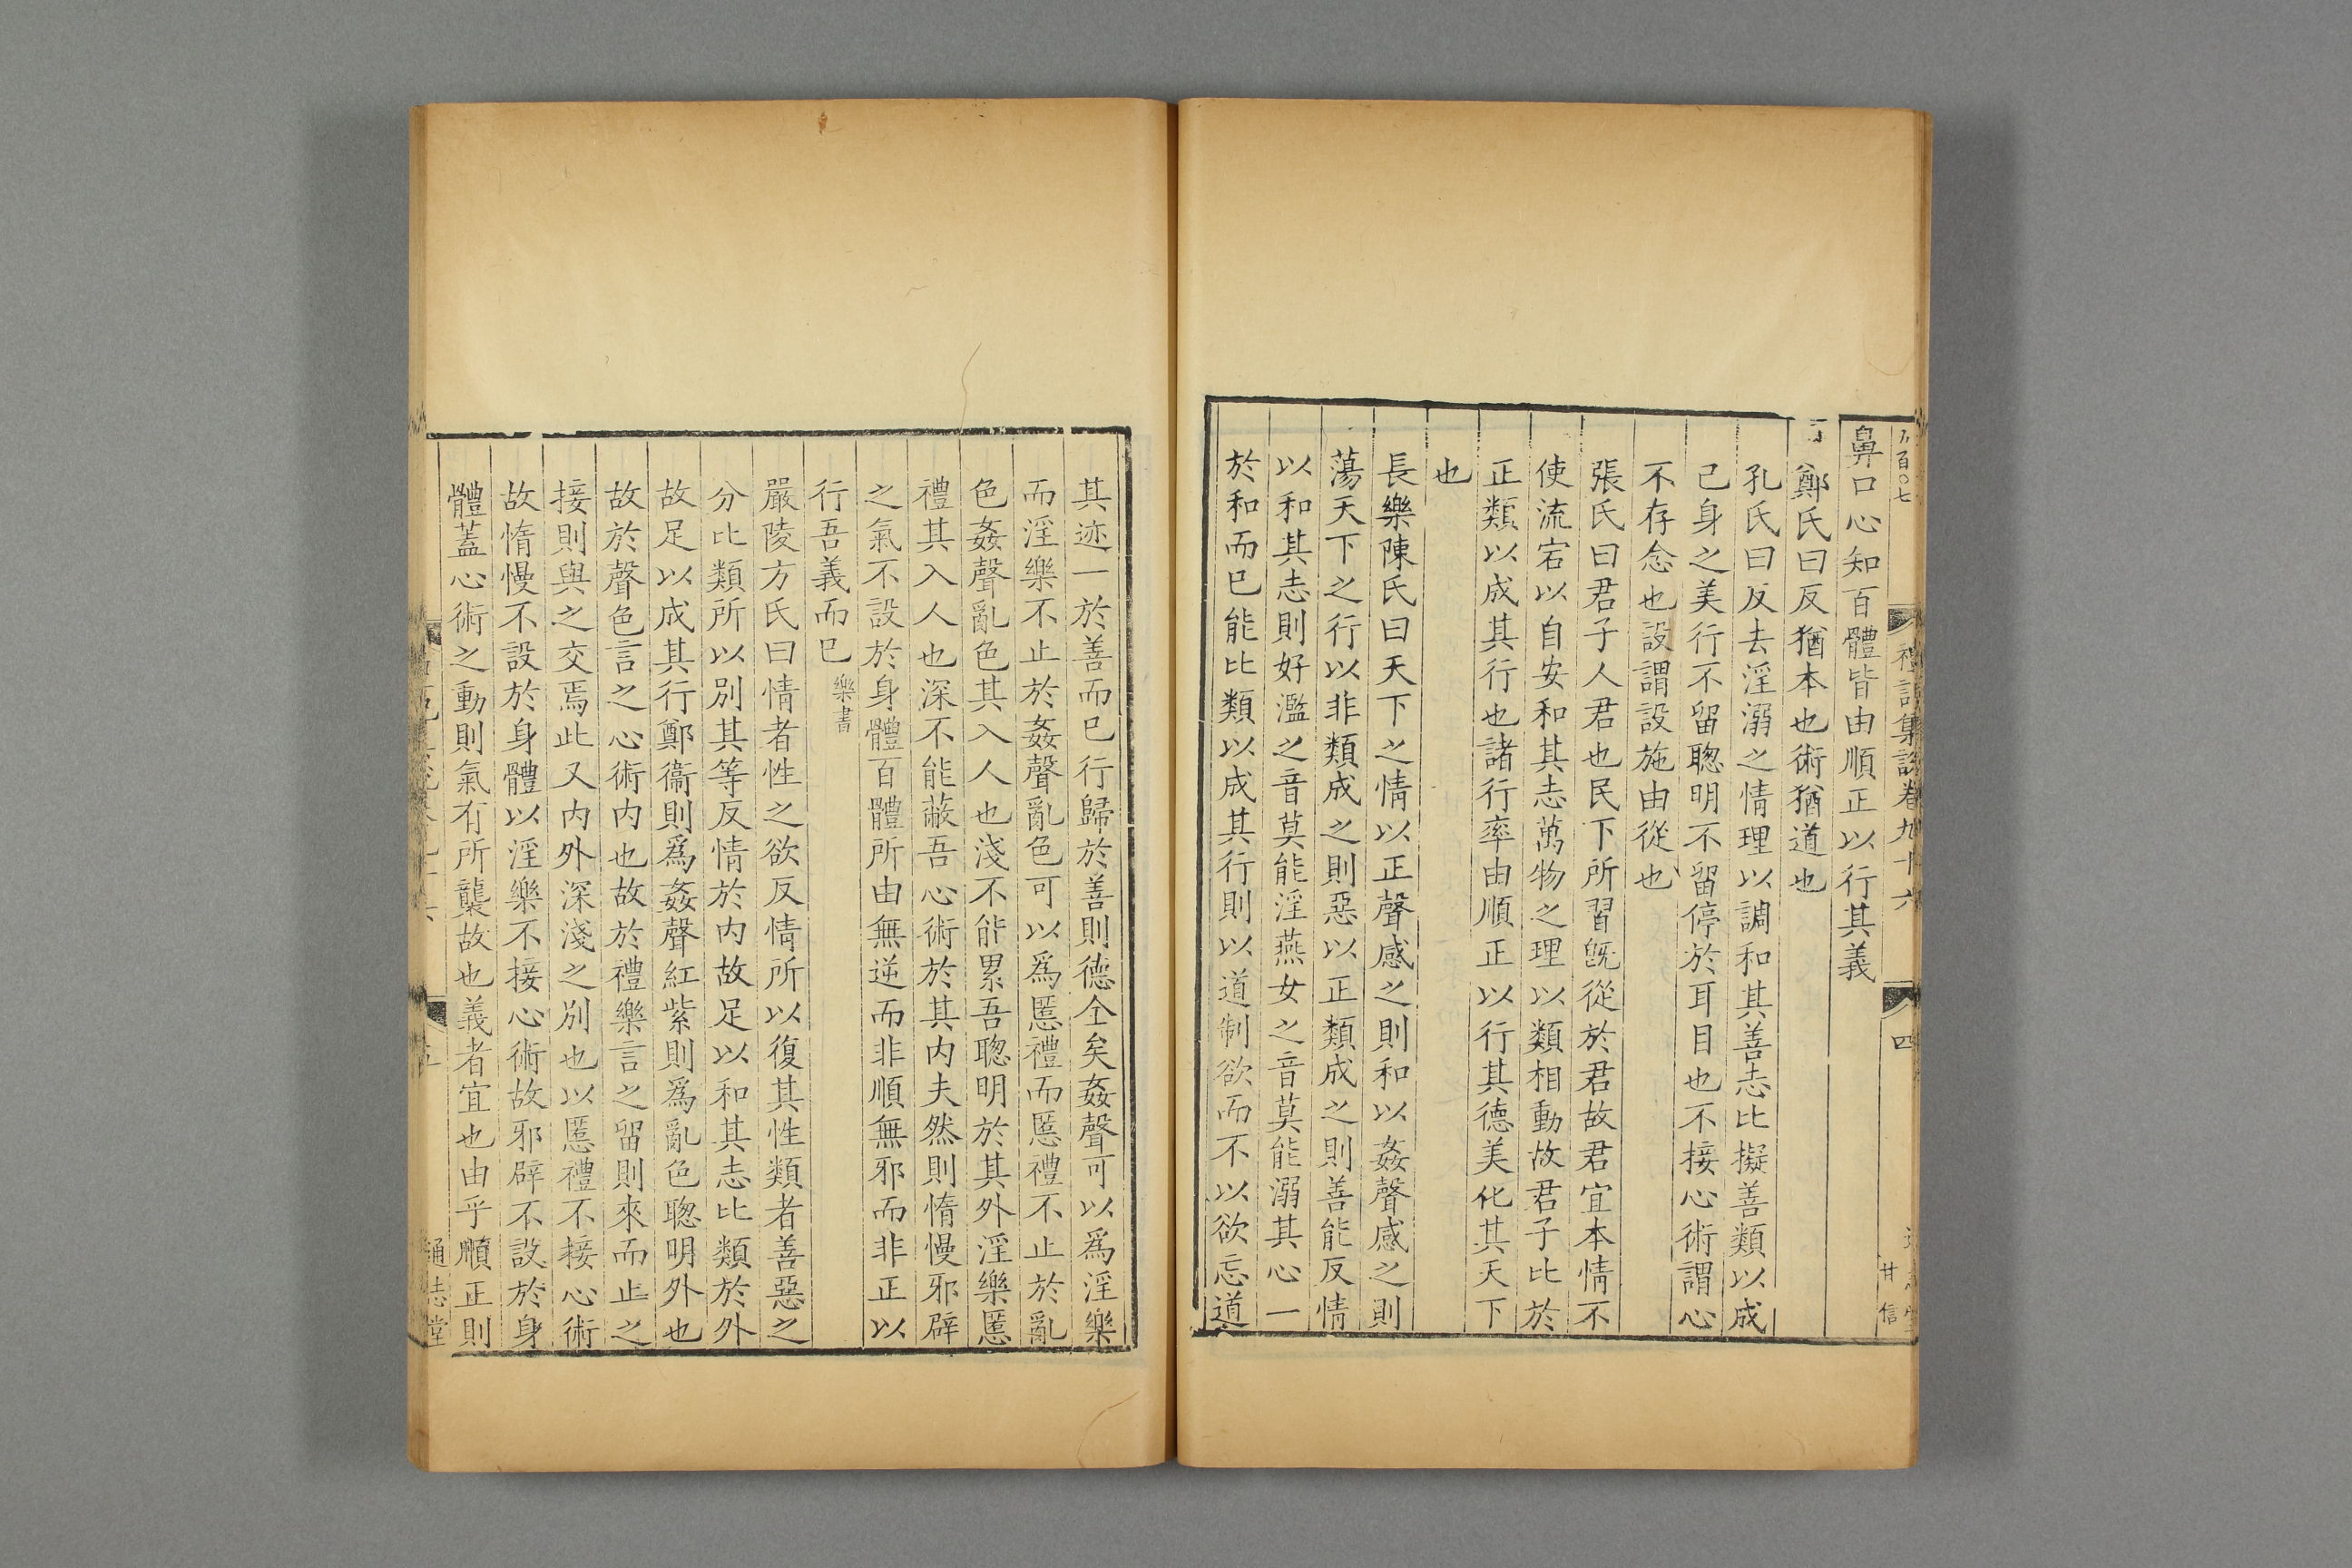 百〇七
禮記集說卷九十六
四
甘信
鼻口心知百體皆由順正以行其義
鄭氏曰反猶本也術猶道也
孔氏曰反去淫溺之情理以調和其善志比擬善類以成
己身之美行不留聰明不留停於耳目也不接心術謂心
不存念也設謂設施由從也
張氏曰君子人君也民下所習旣從於君故君宜本情不
使流宕以自安和其志萬物之理以類相動故君子比於
正類以成其行也諸行率由順正以行其德美化其天下
也
長樂陳氏曰天下之情以正聲感之則和以姦聲感之則
蕩天下之行以非類成之則惡以正類成之則善能反情
以和其志則好濫之音莫能淫燕女之音莫能溺其心一
於和而已能比類以成其行則以道制欲而不以欲忘道
其迹一於善而已行歸於善則德全矣姦聲可以爲淫樂
而淫樂不止於姦聲亂色可以爲慝禮而慝禮不止於亂
色姦聲亂色其入人也淺不能累吾聰明於其外淫樂慝
禮其入人也深不能蔽吾心術於其内夫然則惰慢邪辟
之氣不設於身體百體所由無逆而非順無邪而非正以
行吾義而已樂書
嚴陵方氏曰情者性之欲反情所以復其性類者善惡之
分比類所以別其等反情於内故足以和其志比類於外
故足以成其行鄭衞則爲姦聲紅紫則爲亂色聰明外也
故於聲色言之心術内也故於禮樂言之留則來而止之
接則與之交焉此又内外深淺之別也以慝禮不接心術
故惰慢不設於身體以淫樂不接心術故邪辟不設於身
體蓋心術之動則氣有所襲故也義者宜也由乎順正則
通志堂